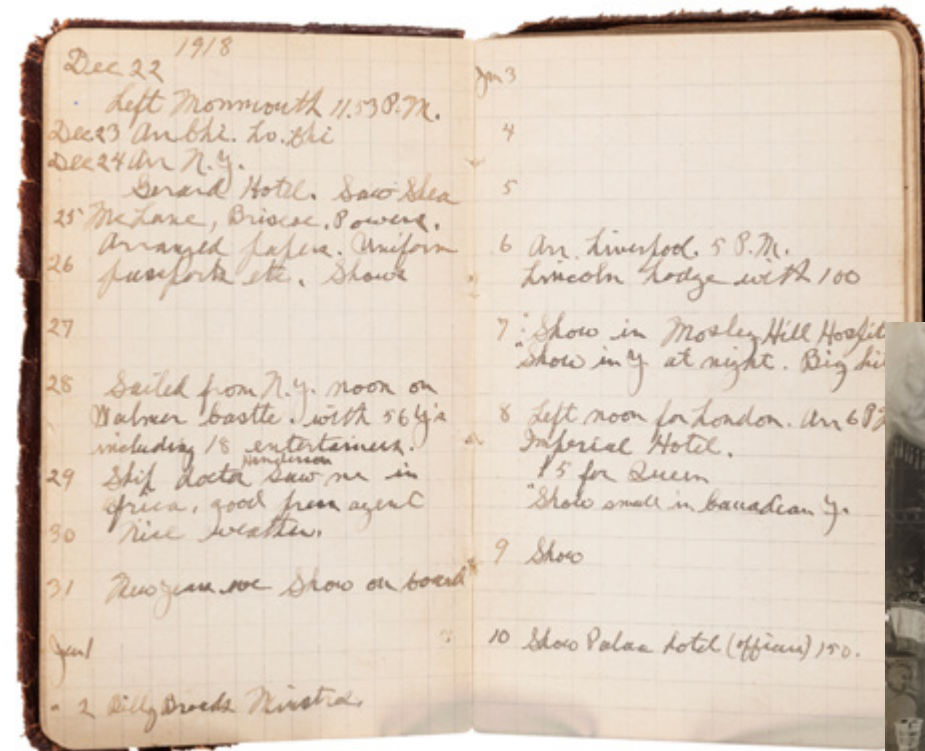 1918
Dec 22
Left Monmouth 11.53 P.M.
Dec 23 Arr Chi. Lv. Chi
Dec 24 Arr N.Y.
Gerard Hotel. Saw Shea
25 McLane, Briscoe, Powers.
Arranged papers. Uniform
26 passports etc. Shows
27
28 Sailed from N.Y. noon on
Walmer Castle. with 56 Y's
including 18 entertainers.
Henderson
29 Ship doctor saw me in
Africa, good press agent
30 Nice weather.
31 New years eve Show on board
Jan 1
" 2 Billy Broads Minstrel.
Jan 3
4
5
6 Arr. Liverpool. 5 P.M.
Lincoln Lodge with 100
7 "Show in Mosley Hill Hospit
"Show in Y at night. Big hit
8 Left noon for London. Arr 6 P.
Imperial Hotel.
5 for Queen
"Show small in Canadian Y.
9 Show
10 Show Palace hotel (officers) 150.